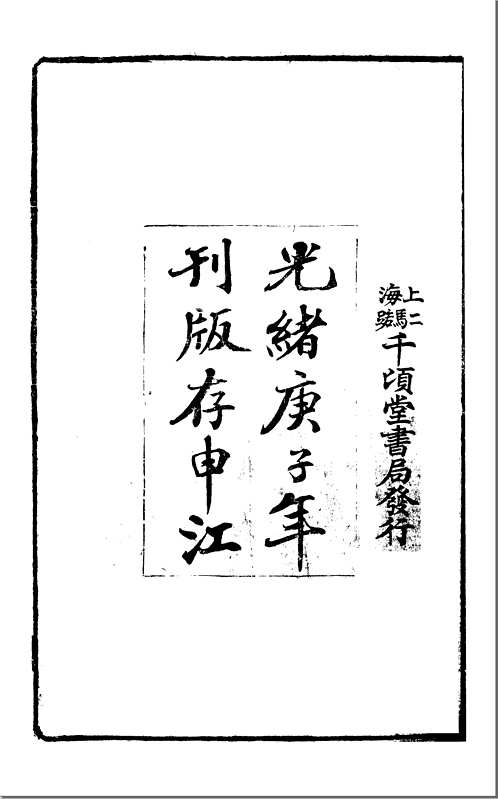 上海二馬路千頃堂書局發行
光緒庚子年
刊版存申江